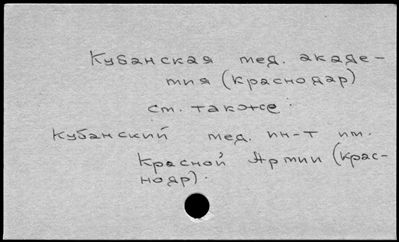 Кубанская мед. акаде-
мия (Краснодар)
см. также:
Кубанский мед. ин-т им.
Красной Армии (Крас-
нояр).